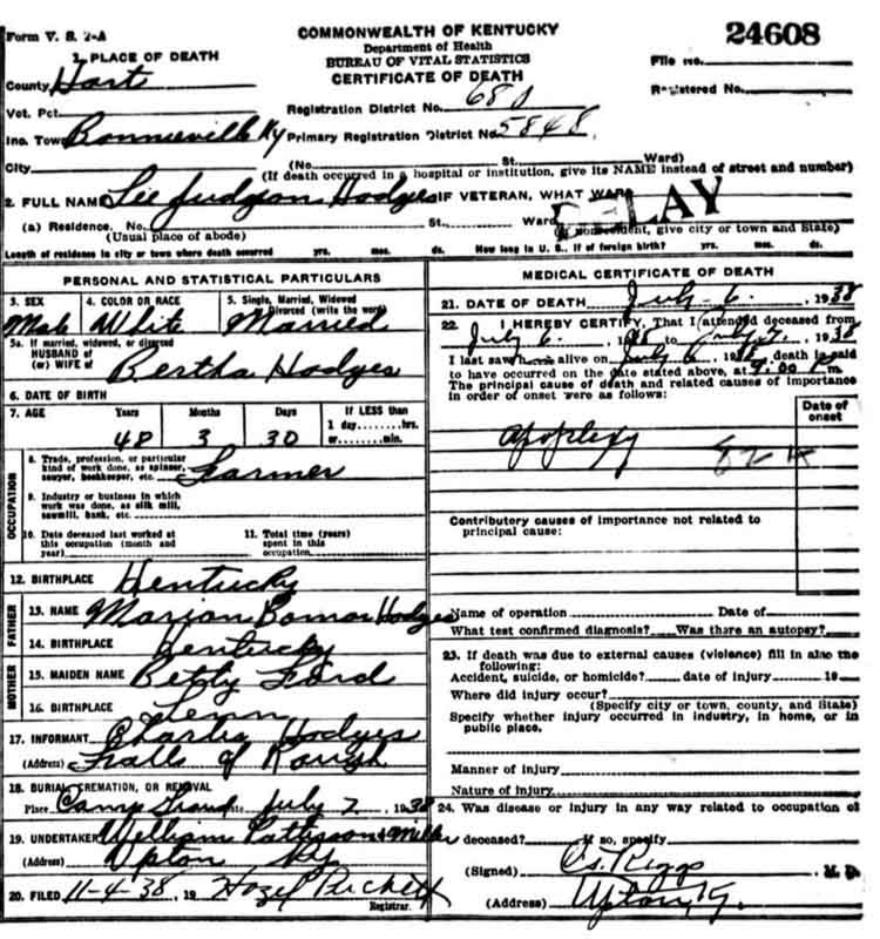 Form V. S. 2-A
COMMONWEALTH OF KENTUCKY
Department of Health
BUREAU OF VITAL STATISTICS
CERTIFICATE OF DEATH
24608
File No.
Registered No.
1. PLACE OF DEATH
County Hart
Vot. Pct.
Registration District No. 680
Inc. Town Bonnieville Ky Primary Registration District No. 5848
City (No. St. Ward)
(If death occurred in a hospital or institution, give its NAME instead of street and number)
2. FULL NAME Lee Judgson Hodges IF VETERAN, WHAT WAR
DELAY
(a) Residence. No. St. Ward
(Usual place of abode) (If nonresident, give city or town and State)
Length of residence in city or town where death occurred yrs. mos. ds. How long in U. S., if of foreign birth? yrs. mos. ds.
PERSONAL AND STATISTICAL PARTICULARS
3. SEX 4. COLOR OR RACE 5. Single, Married, Widowed
Divorced (write the word)
Male White Married
5a. If married, widowed, or divorced
HUSBAND of
(or) WIFE of Bertha Hodges
6. DATE OF BIRTH
7. AGE Years Months Days If LESS than
1 day........hrs.
or........min.
48 3 30
OCCUPATION
8. Trade, profession, or particular
kind of work done, as spinner,
sawyer, bookkeeper, etc. Farmer
9. Industry or business in which
work was done, as silk mill,
sawmill, bank, etc.
10. Date deceased last worked at
this occupation (month and
year)
11. Total time (years)
spent in this
occupation
12. BIRTHPLACE Kentucky
FATHER
13. NAME Marion Bomar Hodges
14. BIRTHPLACE Kentucky
MOTHER
15. MAIDEN NAME Betty Ford
16. BIRTHPLACE Tenn
17. INFORMANT Charlie Hodges
(Address) Falls of Rough
18. BURIAL, CREMATION, OR REMOVAL
Place Camp Ground Date July 7, 1938
19. UNDERTAKER William Pattisson & Miller
(Address) Upton Ky
20. FILED 11-4-38, 19 Hazel Puckett
Registrar.
MEDICAL CERTIFICATE OF DEATH
21. DATE OF DEATH July - 6, 1938
22. I HEREBY CERTIFY, That I attended deceased from
July 6, 1938 to July 7, 1938
I last saw h alive on July 6, 1938, death is said
to have occurred on the date stated above, at 9:00 P m.
The principal cause of death and related causes of importance
in order of onset were as follows:
Date of
onset
Apoplexy 82 A
Contributory causes of importance not related to
principal cause:
Name of operation Date of
What test confirmed diagnosis? Was there an autopsy?
23. If death was due to external causes (violence) fill in also the
following:
Accident, suicide, or homicide? date of injury 19
Where did injury occur?
(Specify city or town, county, and State)
Specify whether injury occurred in industry, in home, or in
public place.
Manner of injury
Nature of injury
24. Was disease or injury in any way related to occupation of
deceased? If so, specify
(Signed) Riggs, M. D.
(Address) Upton, Ky.